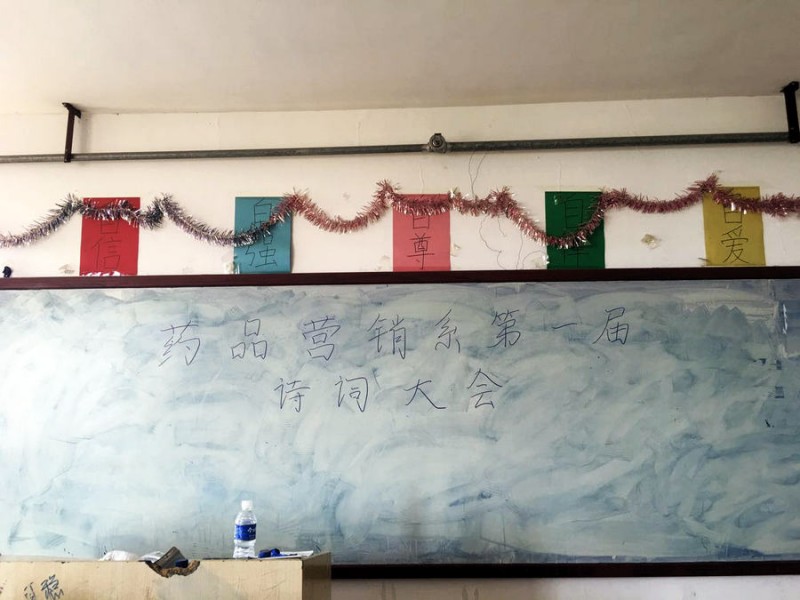 自信
自强
自尊
自律
自爱
药品营销系第一届
诗词大会
稳